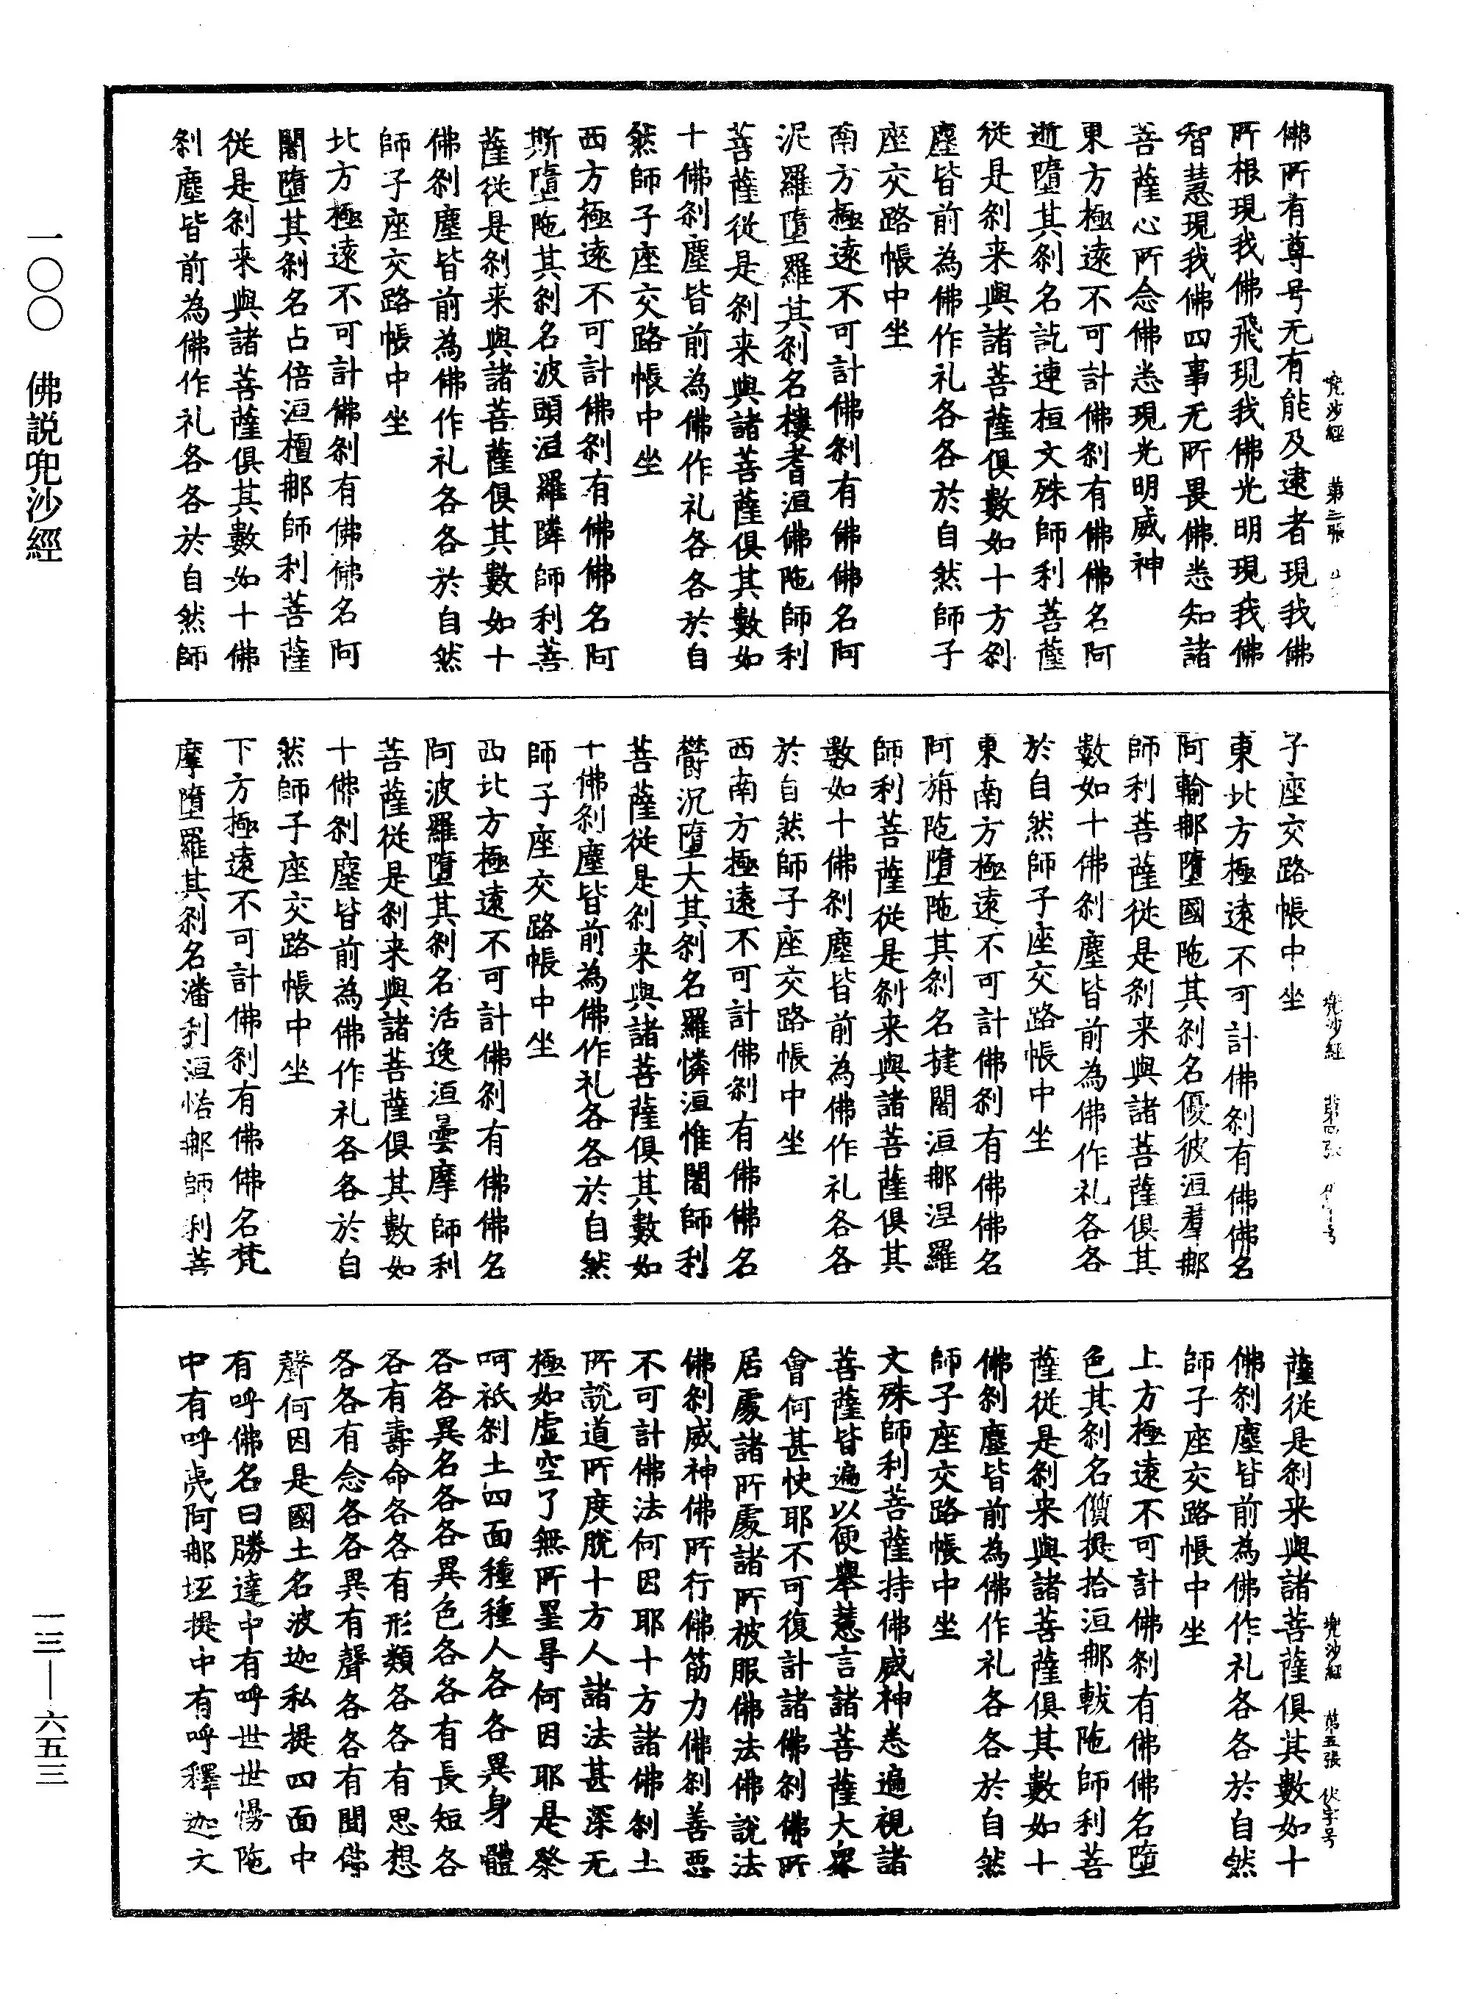 佛所有尊号无有能及逮者現我佛
所根現我佛飛現我佛光明現我佛
智慧現我佛四事无所畏佛悉知諸
菩薩心所念佛悉現光明威神
東方極遠不可計佛剎有佛佛名阿
逝墮其剎名訖連桓文殊師利菩薩
從是剎来與諸菩薩俱數如十方剎
塵皆前為佛作礼各各於自然師子
座交路帳中坐
南方極遠不可計佛剎有佛佛名阿
泥羅墮羅其剎名樓耆洹佛陁師利
菩薩從是剎来與諸菩薩俱其數如
十佛剎塵皆前為佛作礼各各於自
然師子座交路帳中坐
西方極遠不可計佛剎有佛佛名阿
斯墮陁其剎名波頭洹羅隣師利菩
薩從是剎来與諸菩薩俱其數如十
佛剎塵皆前為佛作礼各各於自然
師子座交路帳中坐
北方極遠不可計佛剎有佛佛名阿
闍墮其剎名占倍洹檀那師利菩薩
從是剎来與諸菩薩俱其數如十佛
剎塵皆前為佛作礼各各於自然師
兜沙經 第三張
子座交路帳中坐
東北方極遠不可計佛剎有佛佛名
阿輸那墮國陁其剎名優彼洹羣那
師利菩薩從是剎来與諸菩薩俱其
數如十佛剎塵皆前為佛作礼各各
於自然師子座交路帳中坐
東南方極遠不可計佛剎有佛佛名
阿旃陁墮陁其剎名揵闍洹那涅羅
師利菩薩從是剎来與諸菩薩俱其
數如十佛剎塵皆前為佛作礼各各
於自然師子座交路帳中坐
西南方極遠不可計佛剎有佛佛名
欝沉墮大其剎名羅憐洹惟闍師利
菩薩從是剎来與諸菩薩俱其數如
十佛剎塵皆前為佛作礼各各於自然
師子座交路帳中坐
西北方極遠不可計佛剎有佛佛名
阿波羅墮其剎名活逸洹曇摩師利
菩薩從是剎来與諸菩薩俱其數如
十佛剎塵皆前為佛作礼各各於自
然師子座交路帳中坐
下方極遠不可計佛剎有佛佛名梵
摩墮羅其剎名潘利洹惒那師利菩
兜沙經 第四張
薩從是剎来與諸菩薩俱其數如十
佛剎塵皆前為佛作礼各各於自然
師子座交路帳中坐
上方極遠不可計佛剎有佛佛名墮
色其剎名儹提拾洹那軷陁師利菩
薩從是剎来與諸菩薩俱其數如十
佛剎塵皆前為佛作礼各各於自然
師子座交路帳中坐
文殊師利菩薩持佛威神悉遍視諸
菩薩皆遍以便舉慧言諸菩薩大衆
會何甚快耶不可復計諸佛剎佛所
居處諸所處諸所被服佛法佛說法
佛剎威神佛所行佛筋力佛剎善惡
不可計佛法何因耶十方諸佛剎土
所說道所度脫十方人諸法甚深无
極如虛空了無所罣㝵何因耶是祭
呵祇剎土四面種種人各各異身體
各各異名各各異色各各有長短各
各有壽命各各有形類各各有思想
各各有念各各異有聲各各有聞佛
聲何因是國土名波迦私提四面中
有呼佛名曰勝達中有呼世世慢陁
中有呼夷阿那坘提中有呼釋迦文
兜沙經 第五張 伏字号
一〇〇 佛說兜沙經
一三—六五三